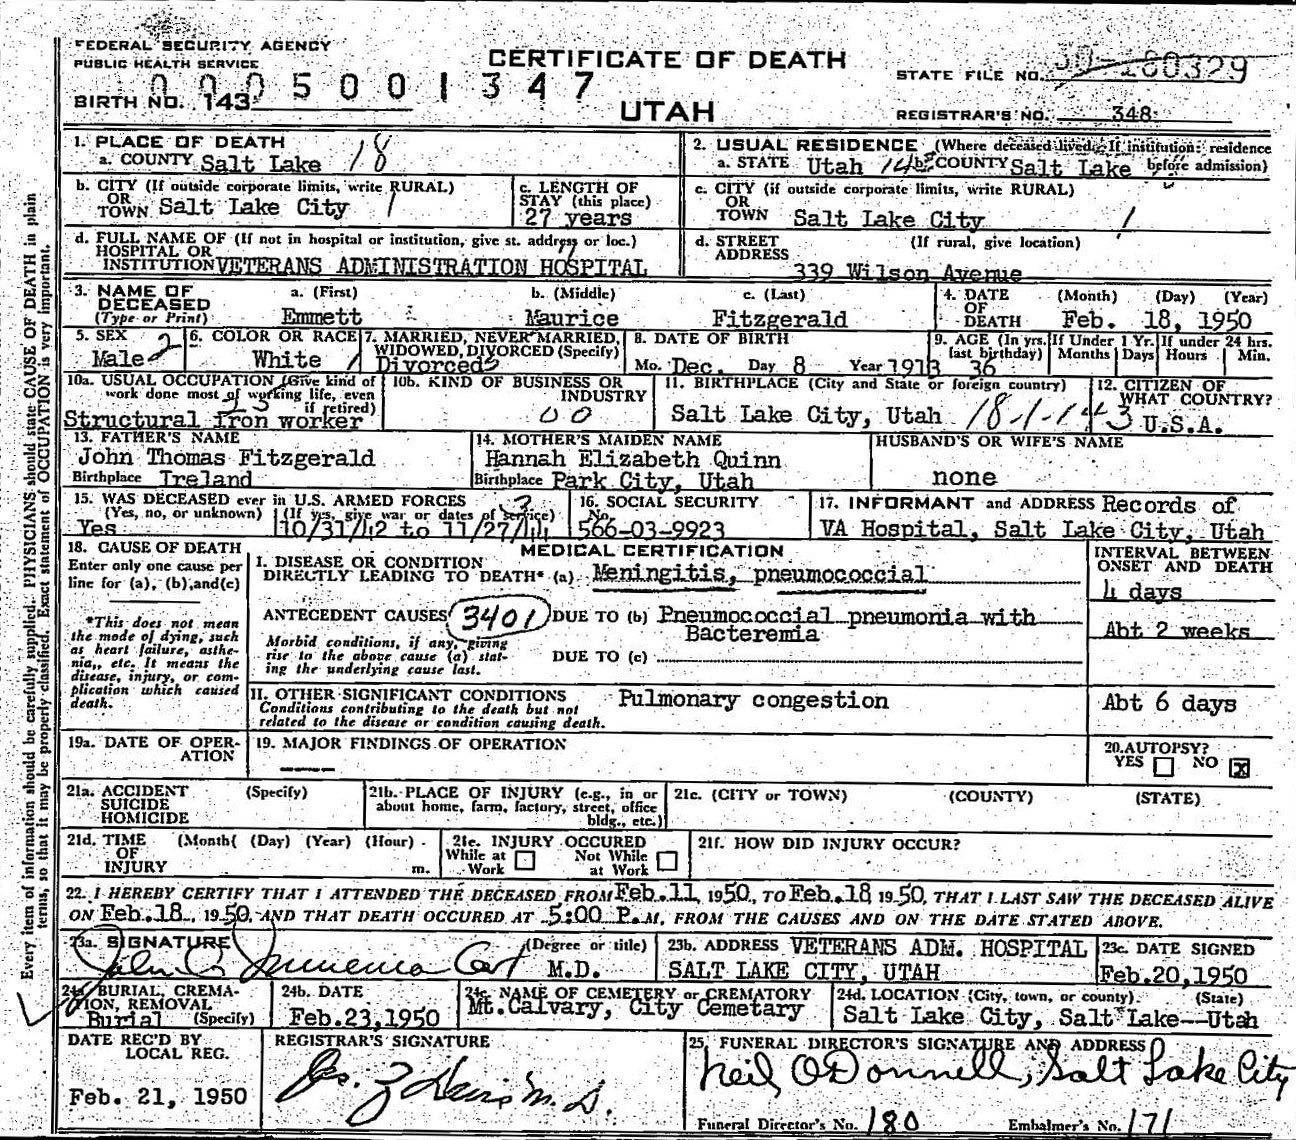 FEDERAL SECURITY AGENCY
PUBLIC HEALTH SERVICE
CERTIFICATE OF DEATH
UTAH
0005001347
BIRTH NO. 143
STATE FILE NO. 50-180329
REGISTRAR'S NO. 348
1. PLACE OF DEATH
a. COUNTY Salt Lake 18
2. USUAL RESIDENCE (Where deceased lived. If institution: residence before admission)
a. STATE Utah b. COUNTY Salt Lake
b. CITY (If outside corporate limits, write RURAL)
OR TOWN Salt Lake City 1
c. LENGTH OF STAY (this place)
27 years
c. CITY (if outside corporate limits, write RURAL)
OR TOWN Salt Lake City 1
d. FULL NAME OF (If not in hospital or institution, give st. address or loc.)
HOSPITAL OR
INSTITUTION VETERANS ADMINISTRATION HOSPITAL
d. STREET ADDRESS (If rural, give location)
339 Wilson Avenue
3. NAME OF DECEASED (Type or Print)
a. (First) b. (Middle) c. (Last)
Emmett Maurice Fitzgerald
4. DATE OF DEATH (Month) (Day) (Year)
Feb. 18, 1950
5. SEX
Male 2
6. COLOR OR RACE
White 1
7. MARRIED, NEVER MARRIED, WIDOWED, DIVORCED (Specify)
Divorced
8. DATE OF BIRTH
Mo. Dec. Day 8 Year 1913
9. AGE (In yrs. last birthday) If Under 1 Yr. Months Days If under 24 hrs. Hours Min.
36
10a. USUAL OCCUPATION (Give kind of work done most of working life, even if retired)
Structural Iron worker
10b. KIND OF BUSINESS OR INDUSTRY
00
11. BIRTHPLACE (City and State or foreign country)
Salt Lake City, Utah 18-1-143
12. CITIZEN OF WHAT COUNTRY?
U.S.A.
13. FATHER'S NAME
John Thomas Fitzgerald
Birthplace Ireland
14. MOTHER'S MAIDEN NAME
Hannah Elizabeth Quinn
Birthplace Park City, Utah
HUSBAND'S OR WIFE'S NAME
none
15. WAS DECEASED ever in U.S. ARMED FORCES 3
(Yes, no, or unknown) (If yes, give war or dates of service)
Yes 10/31/42 to 11/27/44
16. SOCIAL SECURITY No.
566-03-9923
17. INFORMANT and ADDRESS Records of
VA Hospital, Salt Lake City, Utah
18. CAUSE OF DEATH
Enter only one cause per line for (a), (b), and (c)
*This does not mean the mode of dying, such as heart failure, asthenia, etc. It means the disease, injury, or complication which caused death.
MEDICAL CERTIFICATION
I. DISEASE OR CONDITION
DIRECTLY LEADING TO DEATH* (a) Meningitis, pneumococcial
ANTECEDENT CAUSES 3401 DUE TO (b) Pneumococcial pneumonia with
Bacteremia
Morbid conditions, if any, giving rise to the above cause (a) stating the underlying cause last.
DUE TO (c)
INTERVAL BETWEEN ONSET AND DEATH
4 days
Abt 2 weeks
II. OTHER SIGNIFICANT CONDITIONS Pulmonary congestion
Conditions contributing to the death but not related to the disease or condition causing death.
Abt 6 days
19a. DATE OF OPERATION
19. MAJOR FINDINGS OF OPERATION
20. AUTOPSY?
YES NO X
21a. ACCIDENT SUICIDE HOMICIDE (Specify)
21b. PLACE OF INJURY (e.g., in or about home, farm, factory, street, office bldg., etc.)
21c. (CITY or TOWN) (COUNTY) (STATE)
21d. TIME OF INJURY (Month) (Day) (Year) (Hour) m.
21e. INJURY OCCURED
While at Work Not While at Work
21f. HOW DID INJURY OCCUR?
22. I HEREBY CERTIFY THAT I ATTENDED THE DECEASED FROM Feb. 11 1950, TO Feb. 18 1950, THAT I LAST SAW THE DECEASED ALIVE
ON Feb. 18, 1950, AND THAT DEATH OCCURED AT 5:00 P.M., FROM THE CAUSES AND ON THE DATE STATED ABOVE.
23a. SIGNATURE (Degree or title)
M.D.
23b. ADDRESS VETERANS ADM. HOSPITAL
SALT LAKE CITY, UTAH
23c. DATE SIGNED
Feb. 20, 1950
24a. BURIAL, CREMATION, REMOVAL (Specify)
Burial
24b. DATE
Feb. 23, 1950
24c. NAME OF CEMETERY or CREMATORY
Mt. Calvary, City Cemetary
24d. LOCATION (City, town, or county) (State)
Salt Lake City, Salt Lake--Utah
DATE REC'D BY LOCAL REG.
Feb. 21, 1950
REGISTRAR'S SIGNATURE
M.D.
25. FUNERAL DIRECTOR'S SIGNATURE AND ADDRESS
Neil O'Donnell, Salt Lake City
Funeral Director's No. 180 Embalmer's No. 171
Every item of information should be carefully supplied. PHYSICIANS should state CAUSE OF DEATH in plain
terms, so that it may be properly classified. Exact statement of OCCUPATION is very important.